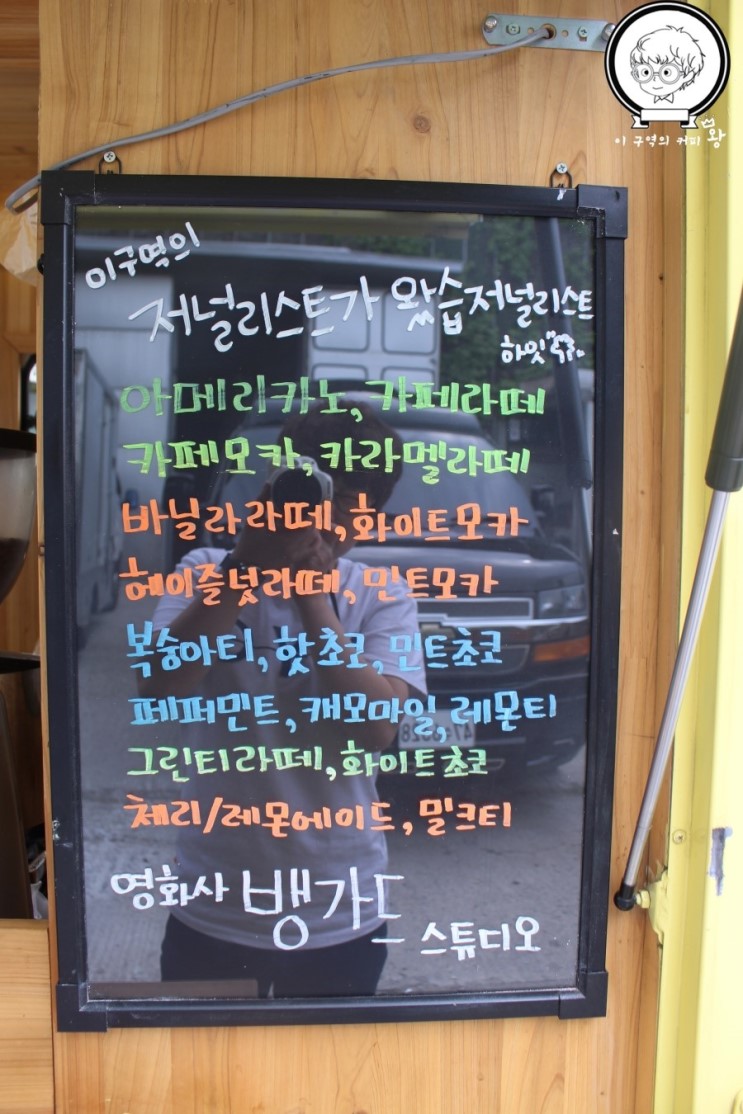 이 구역의 커피 왕
이구역의
저널리스트가 왔습저널리스트
하잇
아메리카노,카페라떼
카페모카,카라멜라떼
바닐라라떼,화이트모카
헤이즐넛라떼,민트모카
복숭아티,핫초코,민트초코
페퍼민트,캐모마일,레몬티
그린티라떼,화이트초코
체리/레몬에이드,밀크티
영화사 뱅가드 스튜디오